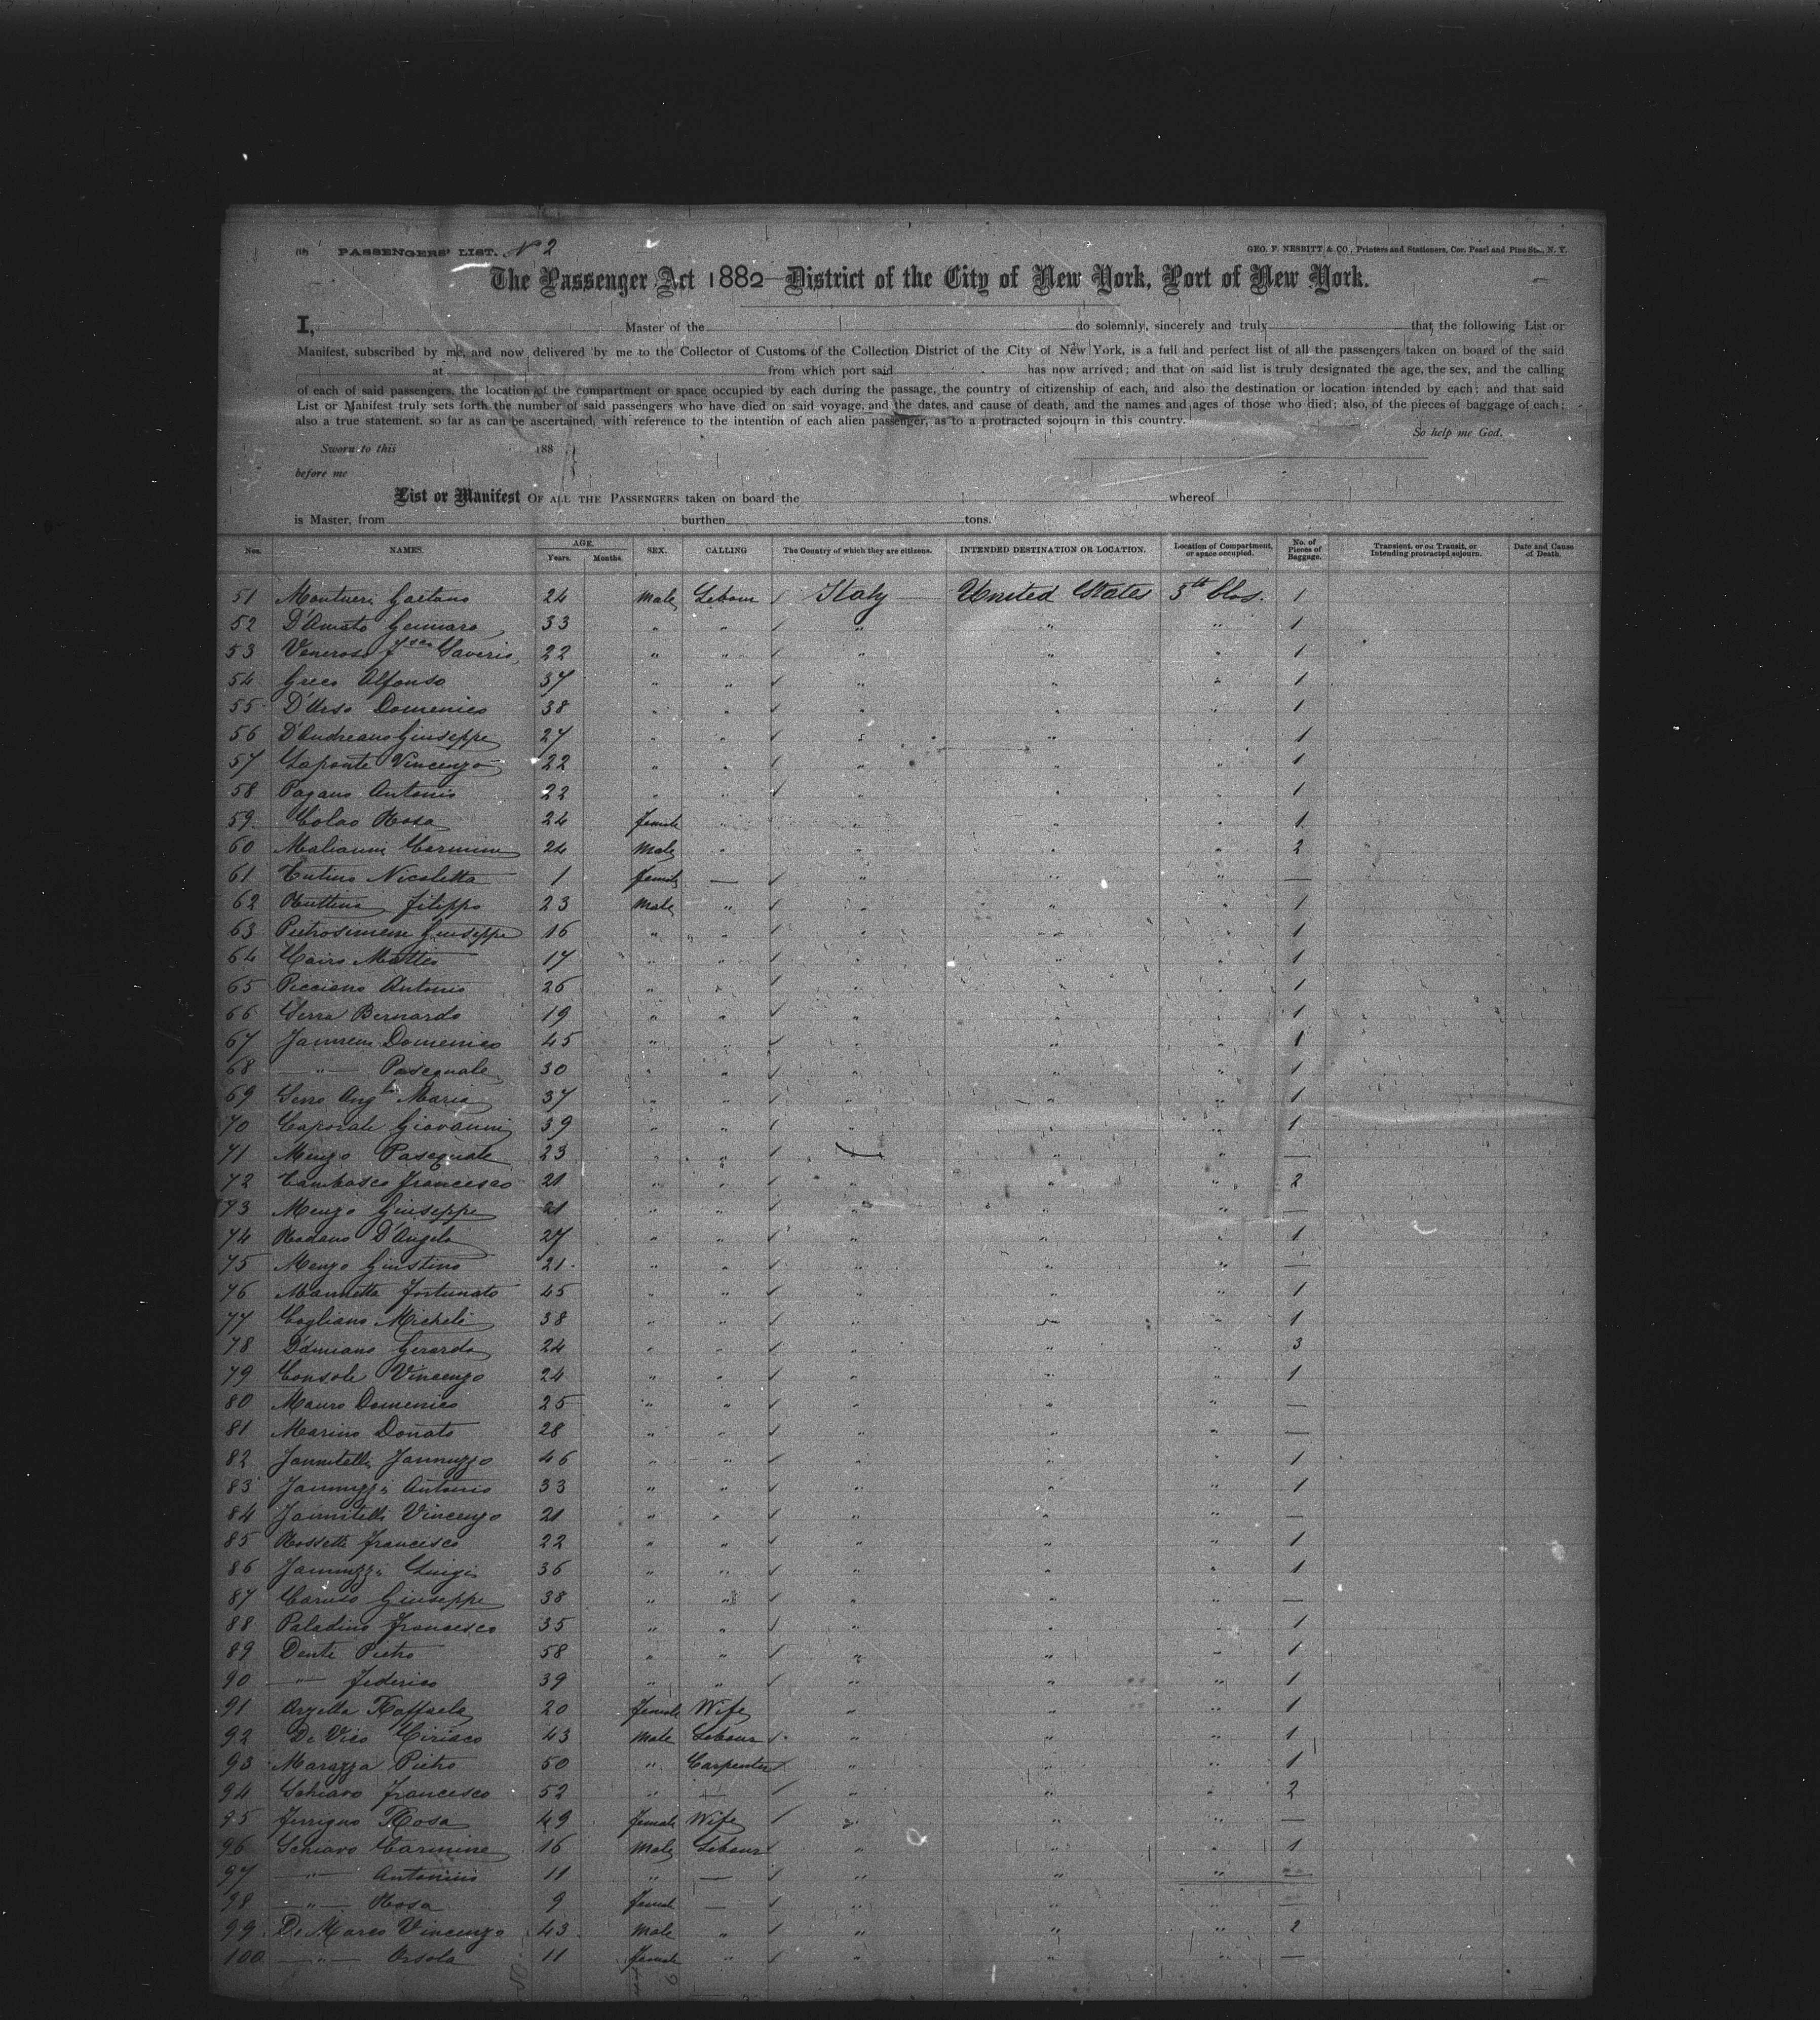 PASSENGERS' LIST. No 2
GEO. F. NESBITT & CO., Printers and Stationers, Cor. Pearl and Pine Sts., N. Y.
The Passenger Act 1882—District of the City of New York, Port of New York.
I, Master of the do solemnly, sincerely and truly that the following List or
Manifest, subscribed by me, and now delivered by me to the Collector of Customs of the Collection District of the City of New York, is a full and perfect list of all the passengers taken on board of the said
at from which port said has now arrived; and that on said list is truly designated the age, the sex, and the calling
of each of said passengers, the location of the compartment or space occupied by each during the passage, the country of citizenship of each, and also the destination or location intended by each; and that said
List or Manifest truly sets forth the number of said passengers who have died on said voyage, and the dates, and cause of death, and the names and ages of those who died; also, of the pieces of baggage of each;
also a true statement, so far as can be ascertained, with reference to the intention of each alien passenger, as to a protracted sojourn in this country.
So help me God.
Sworn to this 188
before me
List or Manifest OF ALL THE PASSENGERS taken on board the whereof
is Master, from burthen tons.
Nos. NAMES. AGE. Years. Months. SEX. CALLING The Country of which they are citizens. INTENDED DESTINATION OR LOCATION. Location of Compartment, or space occupied. No. of Pieces of Baggage. Transient, or on Transit, or Intending protracted sojourn. Date and Cause of Death.
51 Gaetano 24 Male Labour Italy United States 3th Clas. 1
52 D'Amato Gennaro 33 " " " " " 1
53 Veneroso Fsco Saverio 22 " " " " " 1
54 Greco Alfonso 37 " " " " " 1
55 D'Urso Domenico 38 " " " " " 1
56 D'Andreano Giuseppe 27 " " " " " 1
57 Laponte Vincenzo 22 " " " " " 1
58 Pagano Antonio 22 " " " " " 1
59 Colao Rosa 24 Female " " " " 1
60 Carmine 24 Male " " " " 2
61 Nicoletta 1 Female — " " " —
62 Filippo 23 Male " " " " 1
63 Giuseppe 16 " " " " " 1
64 Cairo Matteo 17 " " " " " 1
65 Picciano Antonio 26 " " " " " 1
66 Serra Bernardo 19 " " " " " 1
67 Domenico 45 " " " " " 1
68 —"— Pasquale 30 " " " " " 1
69 Maria 37 " " " " " 1
70 Caporale Giovanni 39 " " " " " 1
71 Menzo Pasquale 23 " " " " —
72 Francesco 21 " " " " " 2
73 Menzo Giuseppe 21 " " " " " —
74 D'Angelo 27 " " " " " 1
75 Menzo Giustino 21 " " " " " —
76 Mannetta Fortunato 45 " " " " " 1
77 Cogliano Michele 38 " " " " " 1
78 Damiano Gerardo 24 " " " " " 3
79 Console Vincenzo 24 " " " " " 1
80 Mauro Domenico 25 " " " " " —
81 Marino Donato 28 " " " " " —
82 Jannitelli Jannuzzo 46 " " " " " 1
83 Jannuzzi Antonio 33 " " " " " 1
84 Jannitelli Vincenzo 21 " " " " " —
85 Rossetti Francesco 22 " " " " " 1
86 Jannuzzi Luigi 36 " " " " " 1
87 Caruso Giuseppe 38 " " " " " —
88 Paladino Francesco 35 " " " " " 1
89 Dente Pietro 58 " " " " " 1
90 —"— Federico 39 " " " " " 1
91 Raffaela 20 Female Wife " " " 1
92 De Vico Ciriaco 43 Male Labour " " " 1
93 Marazza Pietro 50 " Carpenter " " " 1
94 Schiavo Francesco 52 " — " " " 2
95 Ferrigno Rosa 49 Female Wife " " " —
96 Schiavo Carmine 16 Male Labour " " " 1
97 —"— Antonino 11 " — " " " —
98 —"— Rosa 9 Female — " " " —
99 De Marco Vincenzo 43 Male " " " " 2
100 —"— Orsola 11 Female " " " " —